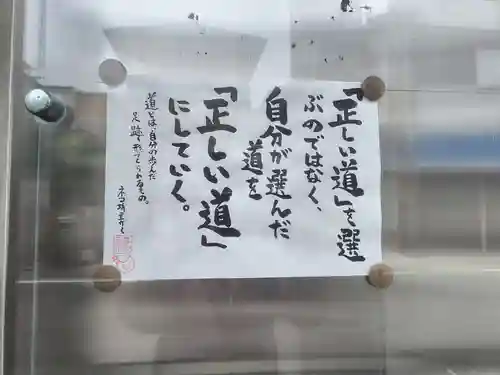 「正しい道」を選
ぶのではなく、
自分が選んだ
道を
「正しい道」
にしていく。
道とは、自分の歩んだ
足跡で形づくられるもの。